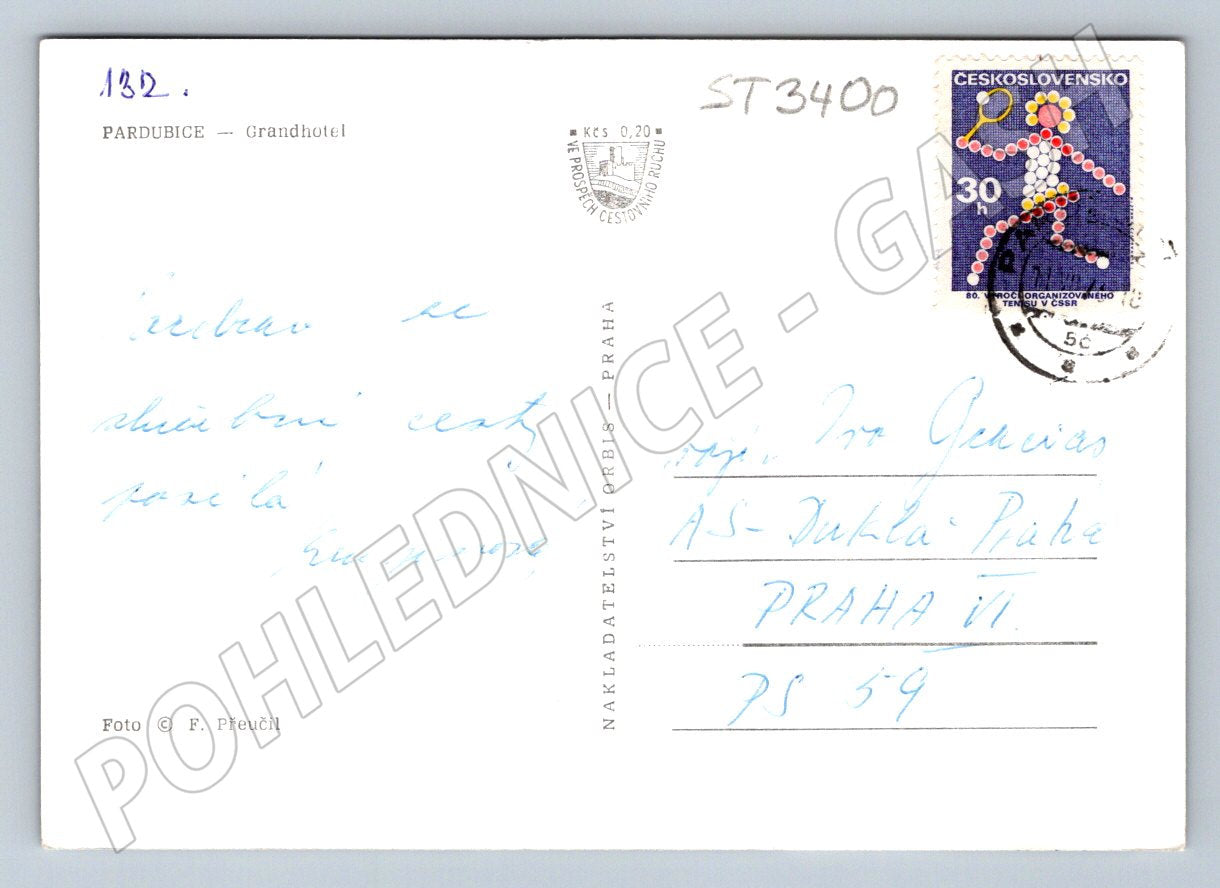 132.
PARDUBICE — Grandhotel
ST3400
Kčs 0,20
VE PROSPĚCH CESTOVNÍHO RUCHU
ČESKOSLOVENSKO
30 h
80. VÝROČÍ ORGANIZOVANÉHO
TENISU V ČSSR
se
služební cesty
posílá
NAKLADATELSTVÍ ORBIS — PRAHA
Ivo
AS-Dukla Praha
PRAHA VI
PS 59
Foto © F. Přeučil
POHLEDNICE - GASH